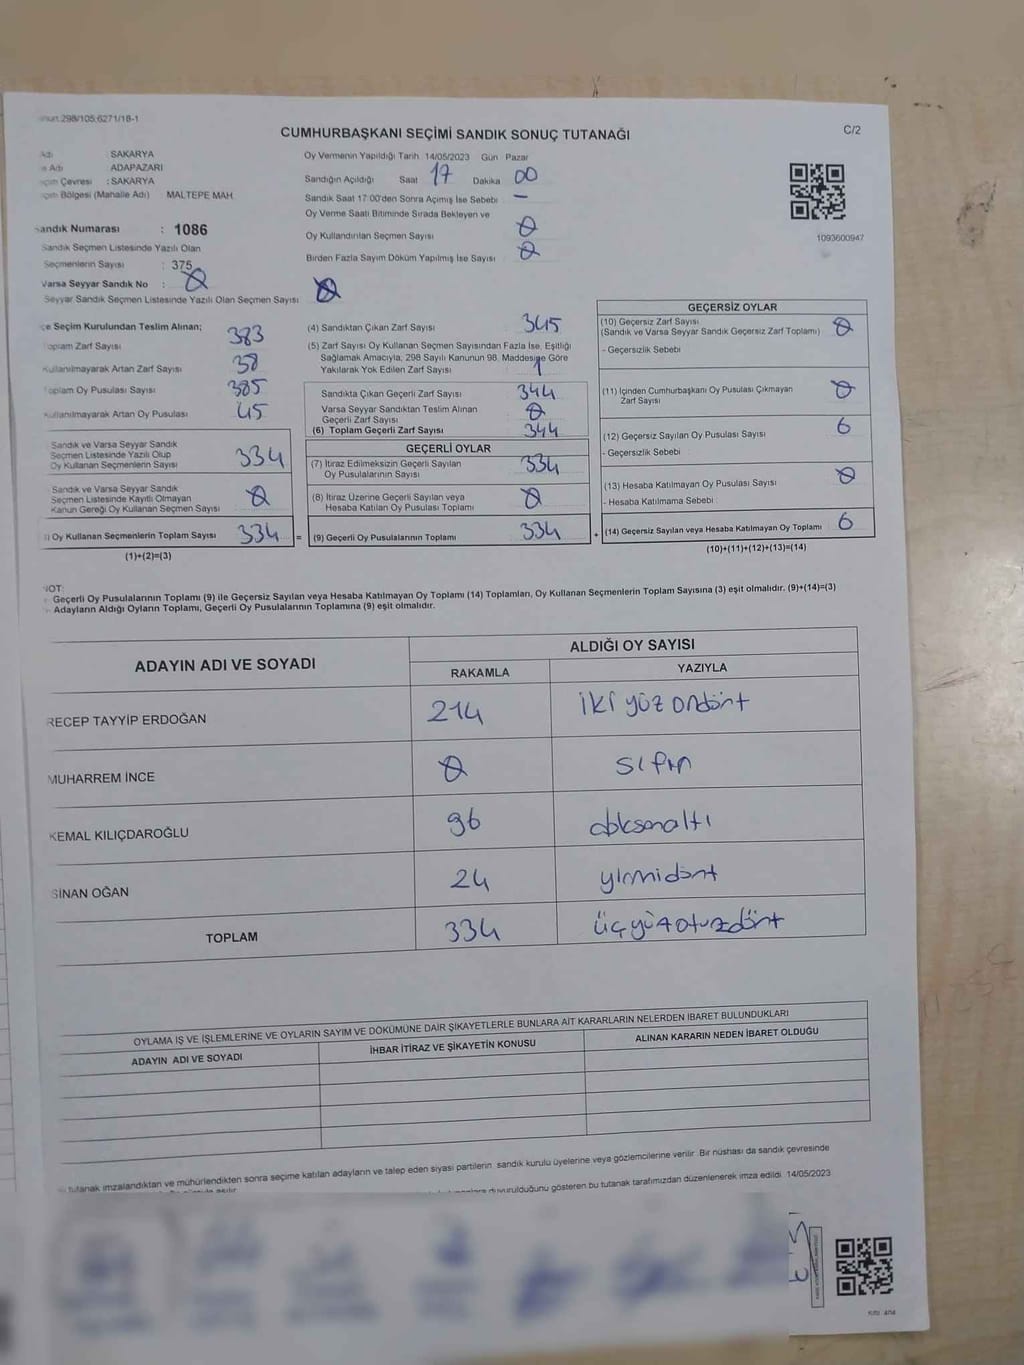 298/105;6271/18-1
CUMHURBAŞKANI SEÇİMİ SANDIK SONUÇ TUTANAĞI
C/2
Adı : SAKARYA
Adı : ADAPAZARI
Çevresi : SAKARYA
Bölgesi (Mahalle Adı) MALTEPE MAH
Sandık Numarası : 1086
Sandık Seçmen Listesinde Yazılı Olan
Seçmenlerin Sayısı : 375
Varsa Seyyar Sandık No : 0
Seyyar Sandık Seçmen Listesinde Yazılı Olan Seçmen Sayısı 0
Oy Vermenin Yapıldığı Tarih 14/05/2023 Gün Pazar
Sandığın Açıldığı Saat 17 Dakika 00
Sandık Saat 17:00'den Sonra Açımış İse Sebebi -
Oy Verme Saati Bitiminde Sırada Bekleyen ve
Oy Kullandırılan Seçmen Sayısı 0
Birden Fazla Sayım Döküm Yapılmış İse Sayısı 0
1093600947
Seçim Kurulundan Teslim Alınan;
Toplam Zarf Sayısı 383
Kullanılmayarak Artan Zarf Sayısı 38
Toplam Oy Pusulası Sayısı 385
Kullanılmayarak Artan Oy Pusulası 45
Sandık ve Varsa Seyyar Sandık
Seçmen Listesinde Yazılı Olup
Oy Kullanan Seçmenlerin Sayısı 334
Sandık ve Varsa Seyyar Sandık
Seçmen Listesinde Kayıtlı Olmayan
Kanun Gereği Oy Kullanan Seçmen Sayısı 0
Oy Kullanan Seçmenlerin Toplam Sayısı 334 =
(1)+(2)=(3)
(4) Sandıktan Çıkan Zarf Sayısı 345
(5) Zarf Sayısı Oy Kullanan Seçmen Sayısından Fazla İse, Eşitliği
Sağlamak Amacıyla, 298 Sayılı Kanunun 98. Maddesine Göre
Yakılarak Yok Edilen Zarf Sayısı 1
Sandıkta Çıkan Geçerli Zarf Sayısı 344
Varsa Seyyar Sandıktan Teslim Alınan
Geçerli Zarf Sayısı 0
(6) Toplam Geçerli Zarf Sayısı 344
GEÇERLİ OYLAR
(7) İtiraz Edilmeksizin Geçerli Sayılan
Oy Pusulalarının Sayısı 334
(8) İtiraz Üzerine Geçerli Sayılan veya
Hesaba Katılan Oy Pusulası Toplamı 0
(9) Geçerli Oy Pusulalarının Toplamı 334 +
GEÇERSİZ OYLAR
(10) Geçersiz Zarf Sayısı
(Sandık ve Varsa Seyyar Sandık Geçersiz Zarf Toplamı) 0
- Geçersizlik Sebebi
(11) İçinden Cumhurbaşkanı Oy Pusulası Çıkmayan
Zarf Sayısı 0
(12) Geçersiz Sayılan Oy Pusulası Sayısı 6
- Geçersizlik Sebebi
(13) Hesaba Katılmayan Oy Pusulası Sayısı 0
- Hesaba Katılmama Sebebi
(14) Geçersiz Sayılan veya Hesaba Katılmayan Oy Toplamı 6
(10)+(11)+(12)+(13)=(14)
NOT:
- Geçerli Oy Pusulalarının Toplamı (9) ile Geçersiz Sayılan veya Hesaba Katılmayan Oy Toplamı (14) Toplamları, Oy Kullanan Seçmenlerin Toplam Sayısına (3) eşit olmalıdır. (9)+(14)=(3)
- Adayların Aldığı Oyların Toplamı, Geçerli Oy Pusulalarının Toplamına (9) eşit olmalıdır.
ADAYIN ADI VE SOYADI ALDIĞI OY SAYISI
RAKAMLA YAZIYLA
RECEP TAYYİP ERDOĞAN 214 iki yüz ondört
MUHARREM İNCE 0 sıfır
KEMAL KILIÇDAROĞLU 96 doksanaltı
SİNAN OĞAN 24 yirmidört
TOPLAM 334 üçyüzotuzdört
OYLAMA İŞ VE İŞLEMLERİNE VE OYLARIN SAYIM VE DÖKÜMÜNE DAİR ŞİKAYETLERLE BUNLARA AİT KARARLARIN NELERDEN İBARET BULUNDUKLARI
ADAYIN ADI VE SOYADI İHBAR İTİRAZ VE ŞİKAYETİN KONUSU ALINAN KARARIN NEDEN İBARET OLDUĞU
tutanak imzalandıktan ve mühürlendikten sonra seçime katılan adayların ve talep eden siyasi partilerin sandık kurulu üyelerine veya gözlemcilerine verilir. Bir nüshası da sandık çevresinde
duyurulduğunu gösteren bu tutanak tarafımızdan düzenlenerek imza edildi. 14/05/2023